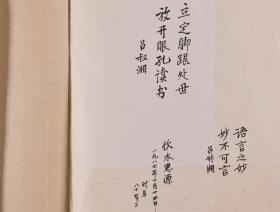 立定脚跟处世
放开眼孔读书
吕叔湘
饮水思源
一九八七年十月十四日
时年
八十有三
语言之妙
妙不可言
吕叔湘